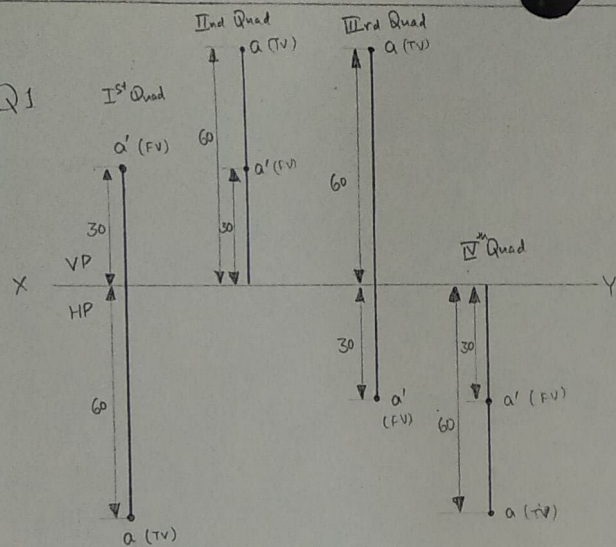 Q1
Ist Quad
a' (FV)
30
VP
X
HP
60
a (TV)
IInd Quad
a (TV)
60
a' (FV)
30
IIIrd Quad
a (TV)
60
30
a'
(FV)
IVth Quad
Y
30
a' (FV)
60
a (TV)